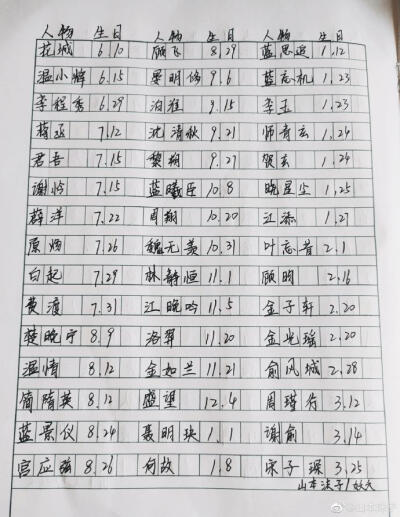 人物 生日 人物 生日 人物 生日
花城 6.10 顾飞 8.29 蓝思追 1.12
温小辉 6.15 晏明修 9.6 蓝忘机 1.23
李程秀 6.29 泊淮 9.15 李玉 1.23
蒋丞 7.12 沈清秋 9.21 师青玄 1.24
君吾 7.15 黎朔 9.27 贺玄 1.24
谢怜 7.15 蓝曦臣 10.8 晓星尘 1.25
薛洋 7.22 周翔 10.20 江添 1.27
原炀 7.26 魏无羡 10.31 叶忘昔 2.1
白起 7.29 林静恒 11.1 顾明 2.16
黄濑 7.31 江晚吟 11.5 金子轩 2.20
楚晚宁 8.9 洛羿 11.20 金光瑶 2.20
温情 8.12 金如兰 11.21 俞风城 2.28
简隋英 8.12 盛望 12.4 周瑾行 3.12
蓝景仪 8.24 聂明玦 1.1 谢俞 3.14
宫应弦 8.26 何故 1.8 宋子琛 3.25